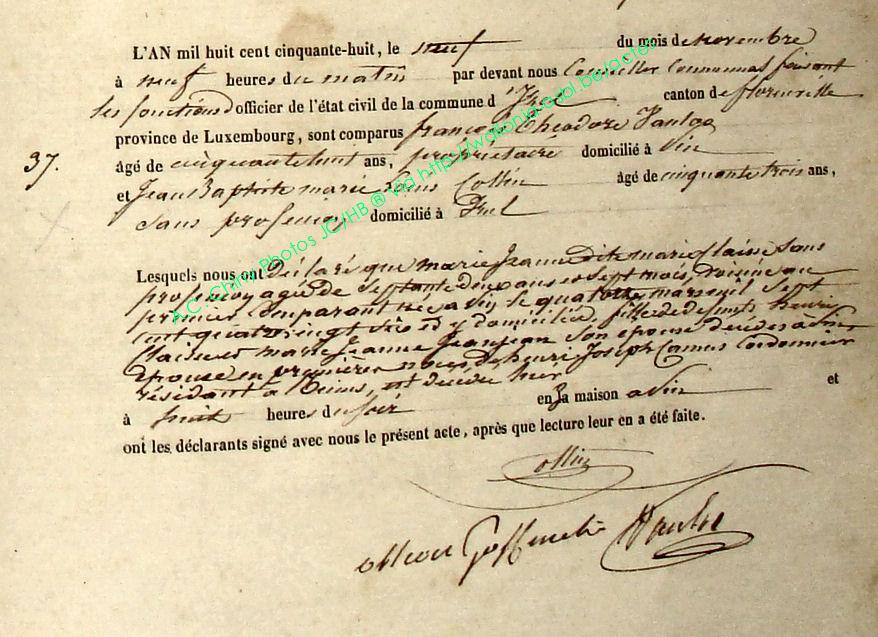 L'AN mil huit cent cinquante-huit, le neuf du mois de Novembre
à neuf heures du matin par devant nous Conseiller Communal faisant
les fonctions d'officier de l'état civil de la commune d'Izel canton de florenville
province de Luxembourg, sont comparus françois Theodore
37.
âgé de cinquantehuit ans, propriétaire domicilié à Vin
et Jean Baptiste marie Collin âgé de cinquante trois ans,
sans profession domicilié à Izel
Lesquels nous ont déclaré que marie Jeanne dite marie Claisse sans
profession, agée de septante deux ans et sept mois, Voisine au
premier comparant née a Vin le quatorze mars mil sept
cent quatre vingt six et y domiciliée, fille de defunts henri
Claisse et marie Jeanne Jeanjean son epouse decedes à Vin
Epouse en premières noces de henri Joseph Camus Cordonnier
résidant a Reims, est decedee hier
à huit heures du soir en sa maison a Vin et
ont les déclarants signé avec nous le présent acte, après que lecture leur en a été faite.
Collin
A.C. Chiny Photos JC/HB ® Via http://wallonia.asbl.be/actes